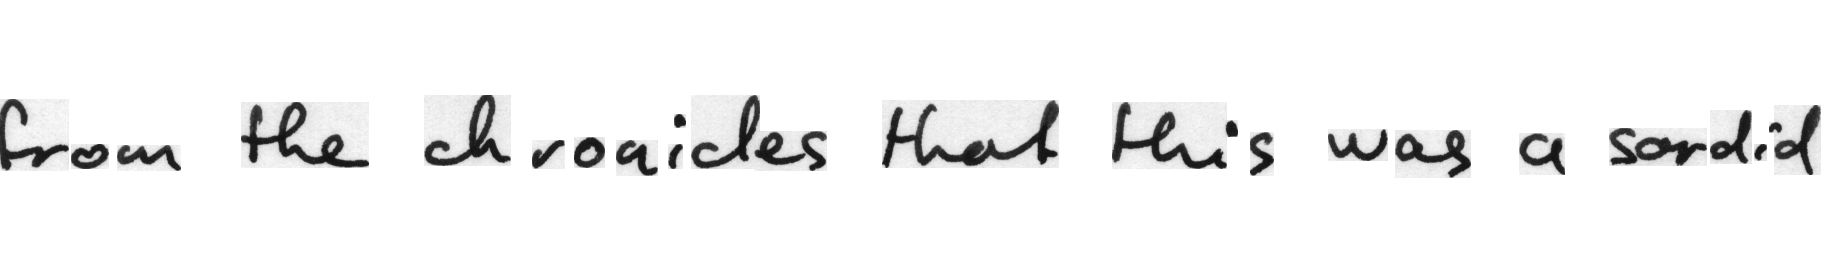 from the chronicles that this was a sordid